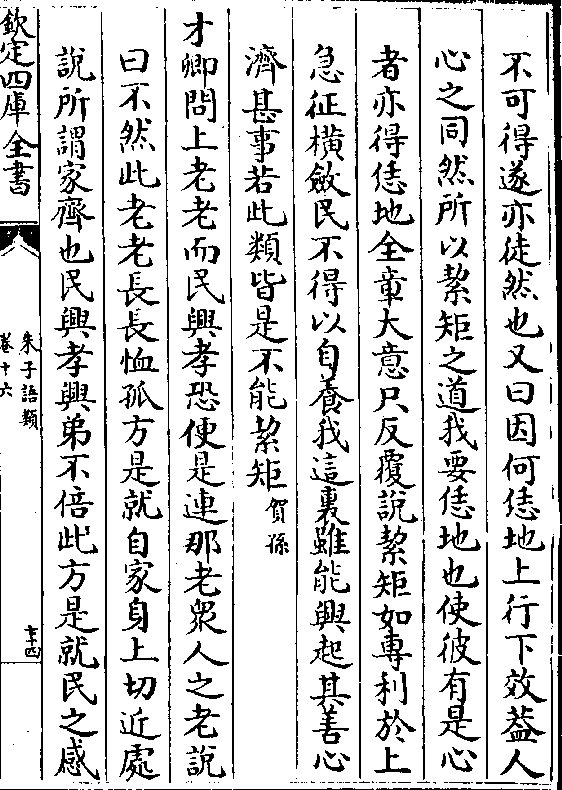 不可得遂亦徒然也又曰因何恁地上行下效葢人
心之同然所以絜矩之道我要恁地也使彼有是心
者亦得恁地全章大意只反覆說絜矩如專利於上
急征橫斂民不得以自養我這裏雖能興起其善心
濟甚事若此類皆是不能絜矩賀孫
才卿問上老老而民興孝恐便是連那老衆人之老說
曰不然此老老長長恤孤方是就自家身上切近處
說所謂家齊也民興孝興弟不倍此方是就民之感
欽定四庫全書
朱子語類
卷十六